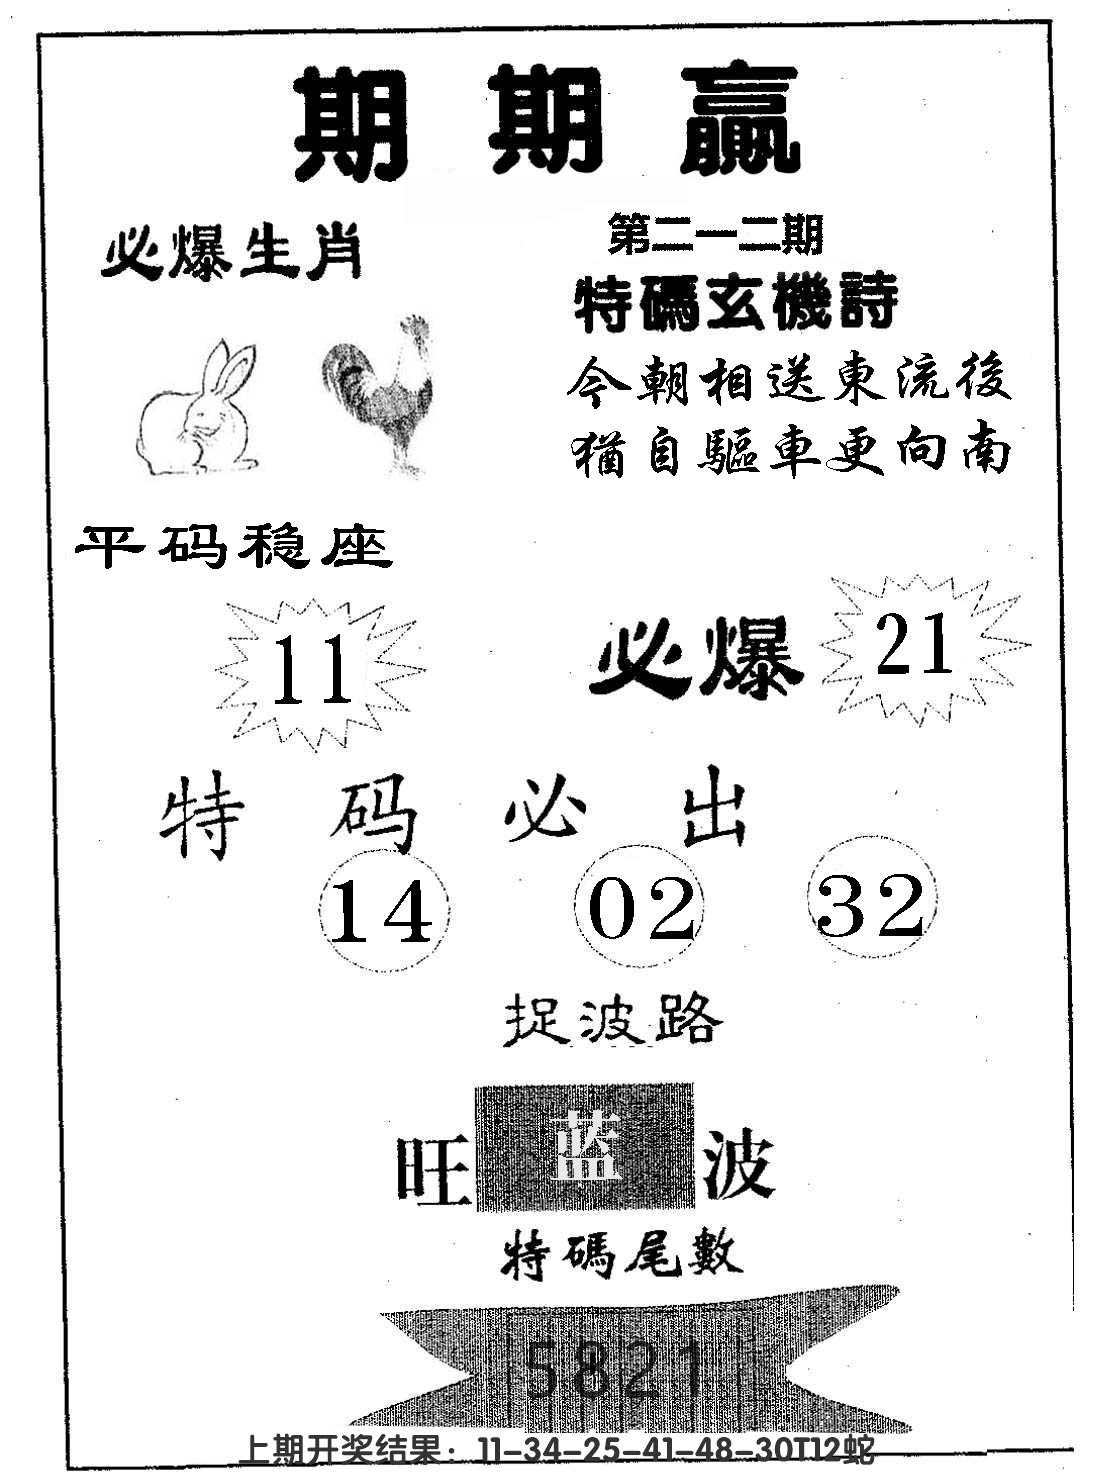 期期赢
必爆生肖
第二一二期
特碼玄機詩
今朝相送東流後
猶自驅車更向南
平码稳座
11
必爆
21
特码必出
14 02 32
捉波路
旺蓝波
特碼尾數
5821
上期开奖结果：11-34-25-41-48-30T12蛇